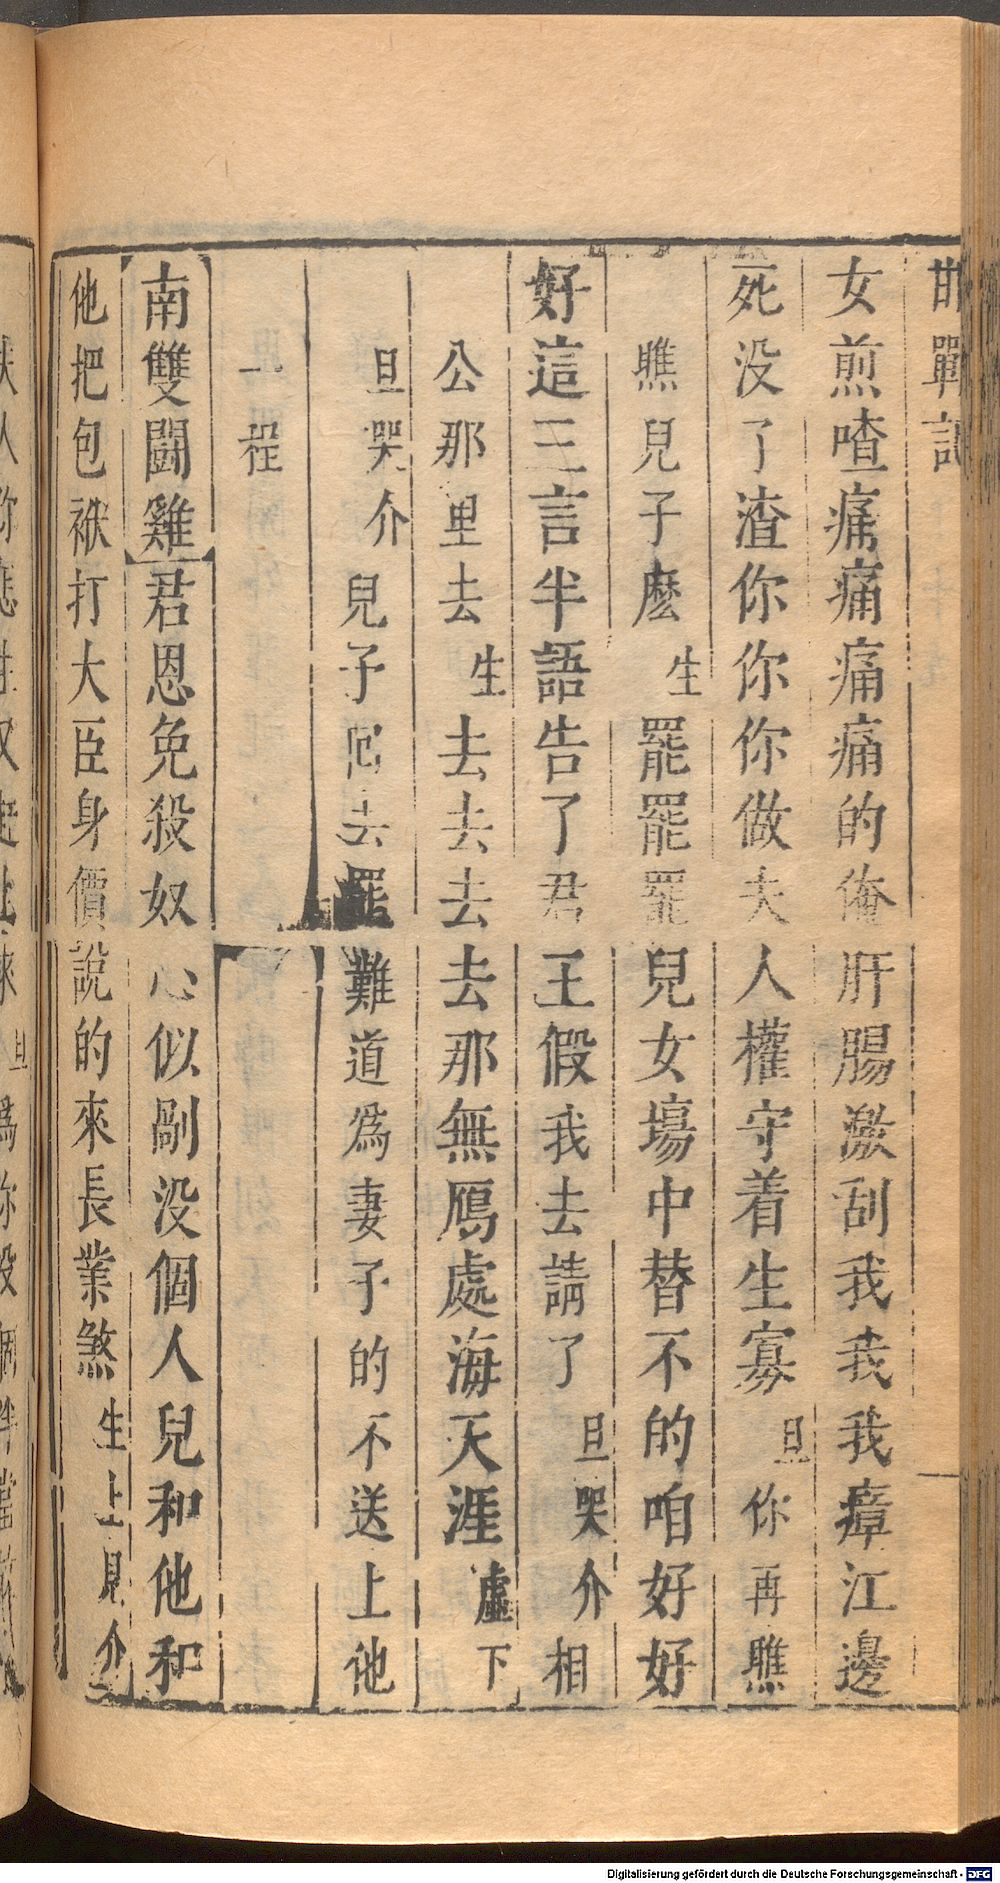 邯鄲記
女煎喳痛痛痛痛的俺肝腸激刮我我我瘴江邊
死没了渣你你你做夫人權守着生寡旦你再瞧
瞧兒子麽生罷罷罷兒女塲中替不的咱好好
好這三言半語告了君王假我去請了旦哭介相
公那里去生去去去去那無鴈處海天涯虛下
旦哭介兒子囘去罷難道爲妻子的不送上他
一程
南雙鬭雞君恩免殺奴心似剮没個人兒和他和
他把包袱打大臣身價說的來長業煞生上見介
Digitalisierung gefördert durch die Deutsche Forschungsgemeinschaft - DFG